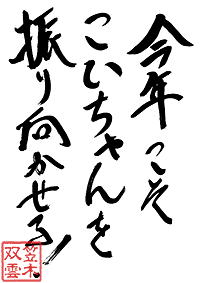 今年こそ
こいちゃんを
振り向かせる!
笠木
双雲